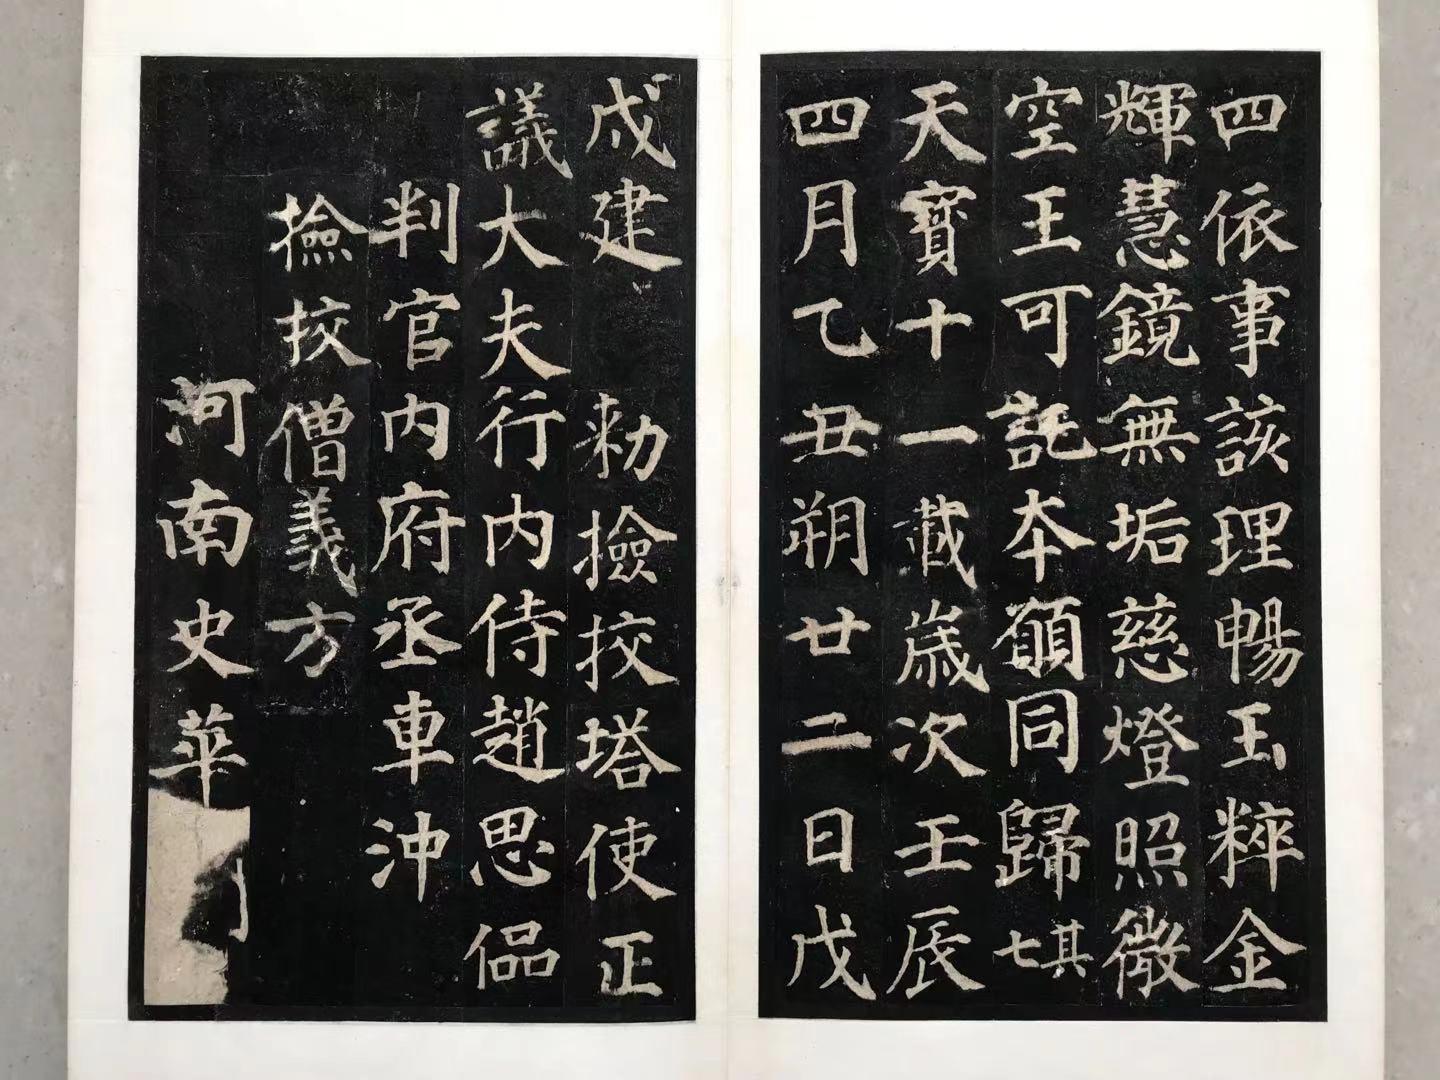 四依事該理暢玉粹金
輝慧鏡無垢慈燈照微
空王可託本願同歸其七
天寶十一載歲次壬辰
四月乙丑朔廿二日戊
戌建 勅撿挍塔使正
議大夫行内侍趙思偘
判官内府丞車沖
撿挍僧義方
河南史華